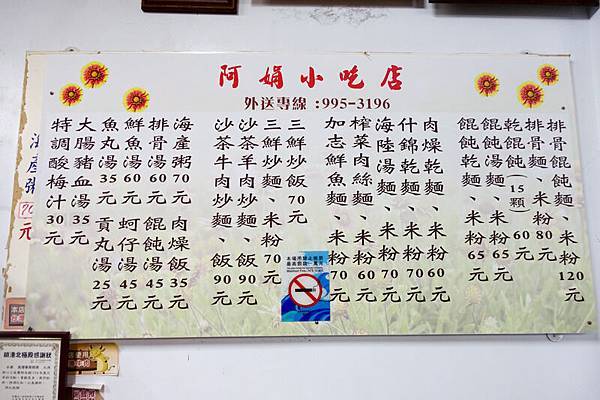 阿娟小吃店
外送專線：995-3196
排骨餛飩麵、米粉120元
排骨麵、米粉80元
乾餛飩(15顆)60元
餛飩湯麵、米粉65元
餛飩乾麵、米粉65元
肉燥乾麵、米粉60元
什錦乾麵、米粉70元
海陸湯麵、米粉70元
榨菜肉絲麵、米粉60元
加志鮮魚麵、
三鮮炒飯70元
三鮮炒麵、米粉70元
沙茶羊肉炒麵、飯90元
沙茶牛肉炒麵、飯90元
海產粥70元
肉燥飯35元
排骨湯60元
餛飩湯45元
鮮魚湯60元
蚵仔湯45元
魚丸湯35元
貢丸湯25元
大腸豬血湯35元
特調酸梅汁30元
海產粥
元
鎮港北極殿感謝狀